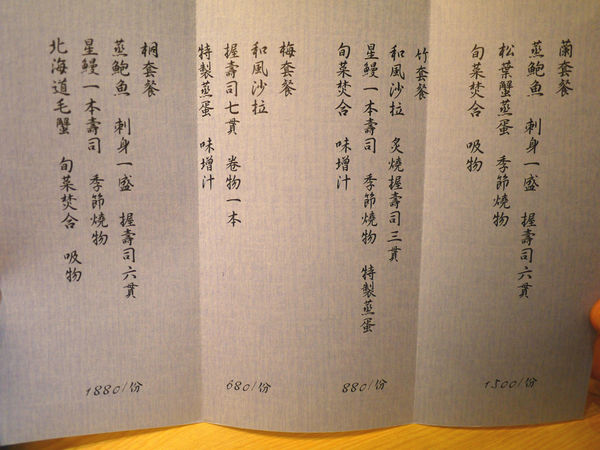 蘭套餐
蒸鮑魚 刺身一盛 握壽司六貫
松葉蟹蒸蛋 季節燒物
旬菜焚合 吸物
1500/份
竹套餐
和風沙拉 炙燒握壽司三貫
星鰻一本壽司 季節燒物 特製蒸蛋
旬菜焚合 味增汁
880/份
梅套餐
和風沙拉
握壽司七貫 卷物一本
特製蒸蛋 味增汁
680/份
桐套餐
蒸鮑魚 刺身一盛 握壽司六貫
星鰻一本壽司 季節燒物
北海道毛蟹 旬菜焚合 吸物
1880/份